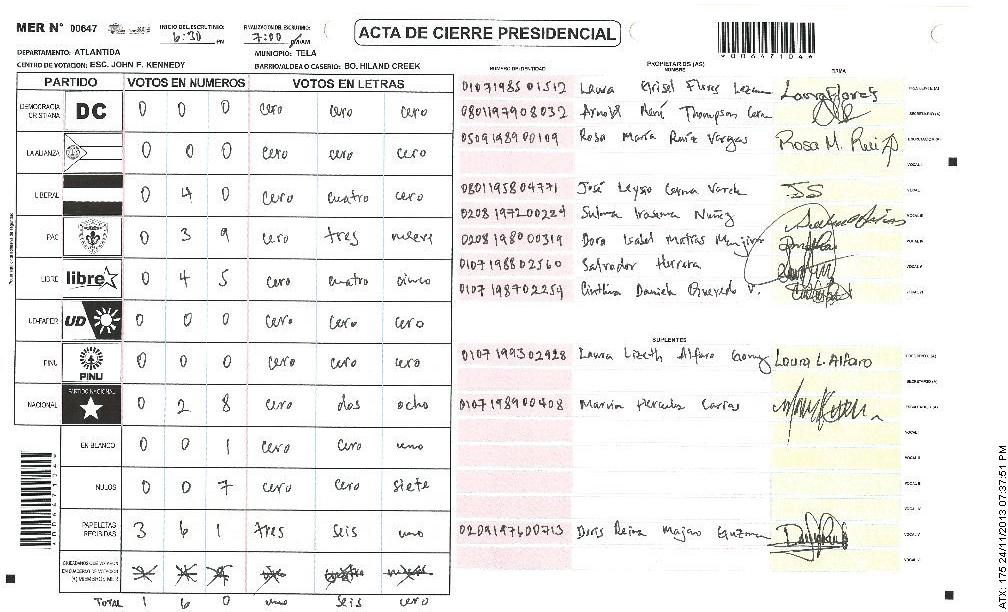 MER N° 00647 INICIO DEL ESCRUTINIO: 6:30 PM FINALIZACION DEL ESCRUTINIO: 7:00 PM/AM
ACTA DE CIERRE PRESIDENCIAL
DEPARTAMENTO: ATLANTIDA MUNICIPIO: TELA
CENTRO DE VOTACION: ESC. JOHN F. KENNEDY BARRIO/ALDEA O CASERIO: BO. HILAND CREEK
PARTIDO VOTOS EN NUMEROS VOTOS EN LETRAS
DEMOCRACIA CRISTIANA DC 0 0 0 cero cero cero
LA ALIANZA 0 0 0 cero cero cero
LIBERAL 0 4 0 cero cuatro cero
PAC 0 3 9 cero tres nueve
LIBRE libre 0 4 5 cero cuatro cinco
UD-FAPER UD 0 0 0 cero cero cero
PINU PINU 0 0 0 cero cero cero
NACIONAL PARTIDO NACIONAL 0 2 8 cero dos ocho
EN BLANCO 0 0 1 cero cero uno
NULOS 0 0 7 cero cero siete
PAPELETAS RECIBIDAS 3 6 1 tres seis uno
CIUDADANOS QUE VOTARON EN CUADERNO DE VOTACION (+) MIEMBROS MER
TOTAL 1 6 0 uno seis cero
NUMERO DE IDENTIDAD PROPIETARIOS (AS) NOMBRE FIRMA
0107198501512 Laura Grisel Flores Lezama Laura Flores PRESIDENTE (A)
0801197908032 Arnold René Thompson SECRETARIO (A)
0509198900109 Rosa María Ruíz Vargas Rosa M. Ruiz ESCRUTADOR (A)
VOCAL I
0801195804771 José VOCAL II
0208197200224 Sulma Nuñez VOCAL III
0208198000319 Dora Isabel VOCAL IV
0107198802560 Salvador Herrera VOCAL V
0107198702259 Cinthia Daniela Quevedo V. VOCAL VI
SUPLENTES
0107199302928 Laura Lizeth Alfaro Laura L. Alfaro PRESIDENTE (A)
SECRETARIO (A)
0107198900408 ESCRUTADOR (A)
VOCAL I
VOCAL II
VOCAL III
VOCAL IV
0209197600713 Doris Reina VOCAL V
VOCAL VI
ATX: 175 24/11/2013 07:37:51 PM